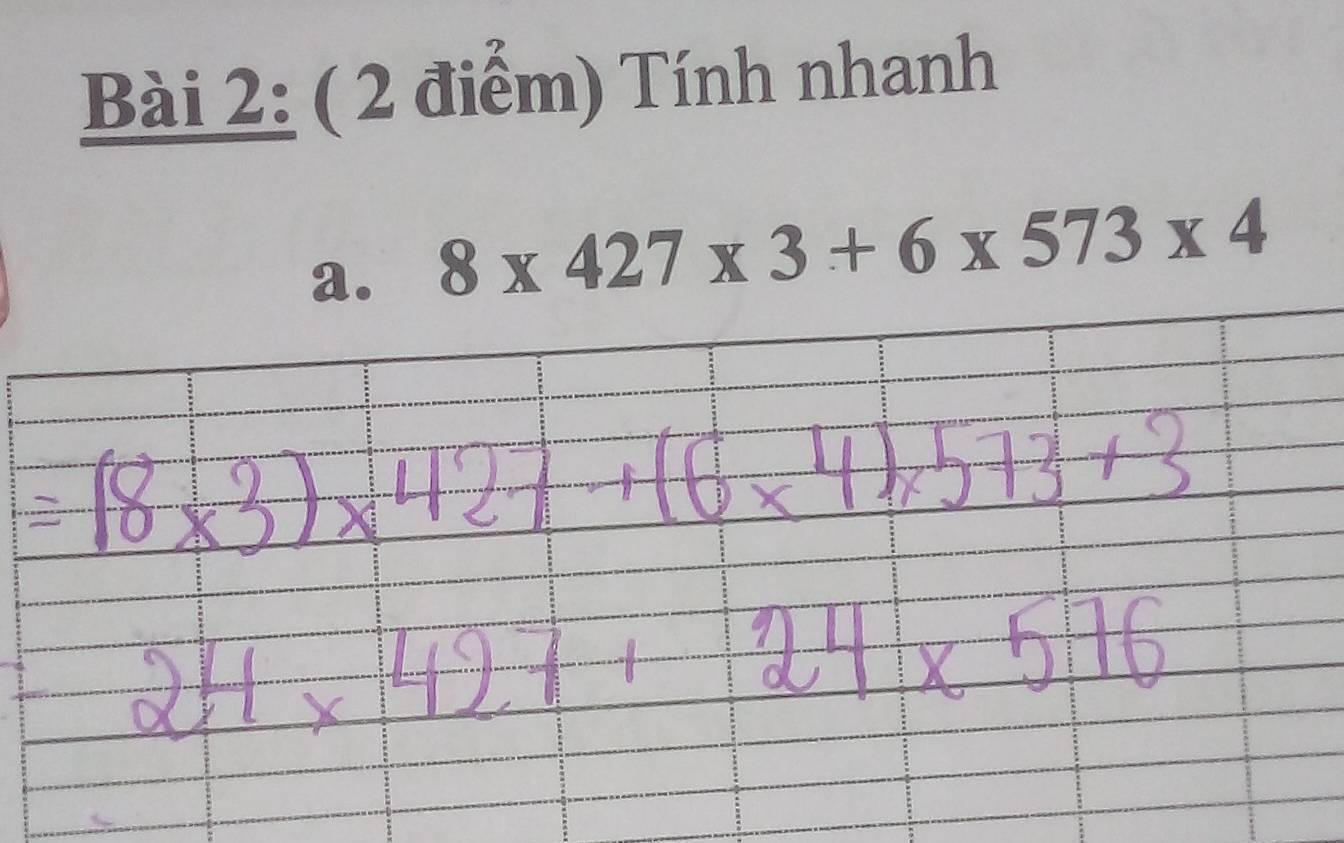 Bài 2: ( 2 điểm) Tính nhanh
a. 8 x 427 x 3 + 6 x 573 x 4
= (8 x 3) x 427 + (6 x 4) x 573 + 3
= 24 x 427 + 24 x 576